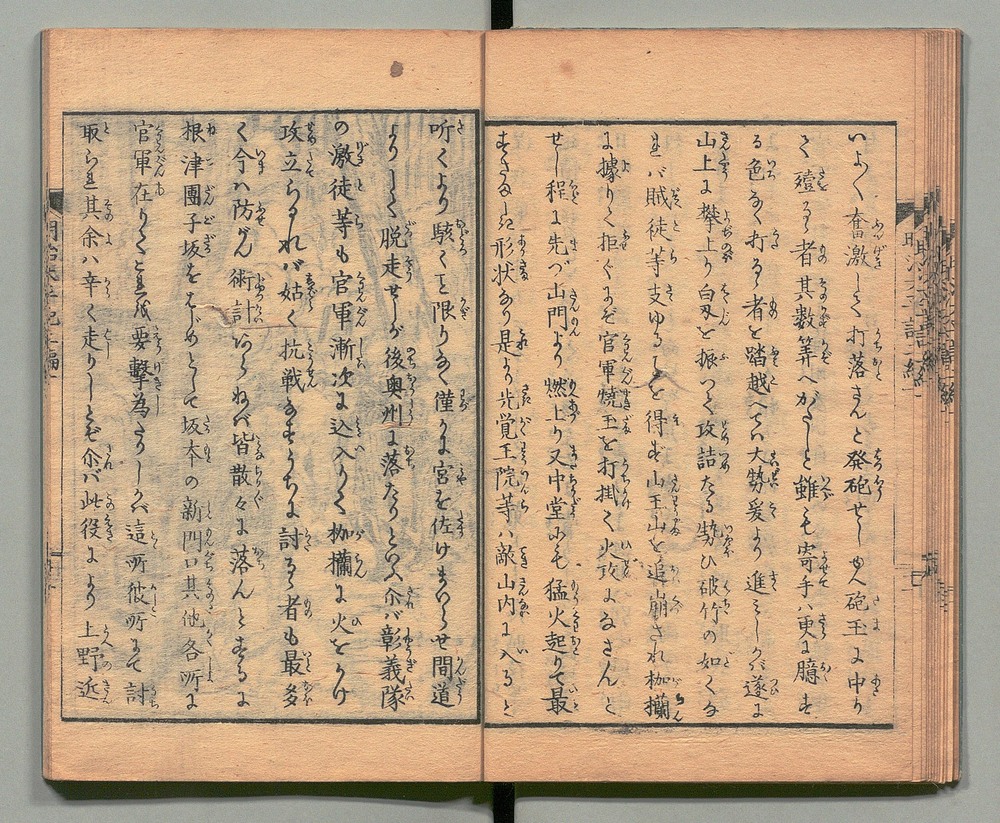 いよ〳〵奮激して打落さんと発砲せしゆへ砲玉に中り
て殪るゝ者其数筭へがたしと雖も寄手ハ更に臆す
る色なく打るゝ者を踏越へて大勢爰より進ミしかバ遂に
山上に攀上り白刄を振つて攻詰たる勢ひ破竹の如くな
れバ賊徒等支ゆることを得ず山王山を追崩され枷欄
に據りて拒ぐにぞ官軍焼玉を打掛て火攻になさんと
せし程に先づ山門より燃上り又中堂にも猛火起りて最
すさまじき形状なり是より先覚王院等ハ敵山内に入ると
听くより駭くこと限りなく僅かに宮を佐けまいらせ間道
よりして脱走せしが後奥州に落たりといふ尒バ彰義隊
の激徒等も官軍漸次に込入りて枷欄に火をかけ
攻立らるれバ姑く抗戦なすうちに討るゝ者も最多
く今ハ防がん術計あらねバ皆散々に落んとするに
根津團子坂をはじめとして坂本の新門口其他各所に
官軍在りてこれを要撃為たりしかバ這所彼所にて討
取られ其余ハ辛く走りしとぞ尒バ此役により上野近
明治太平記二編